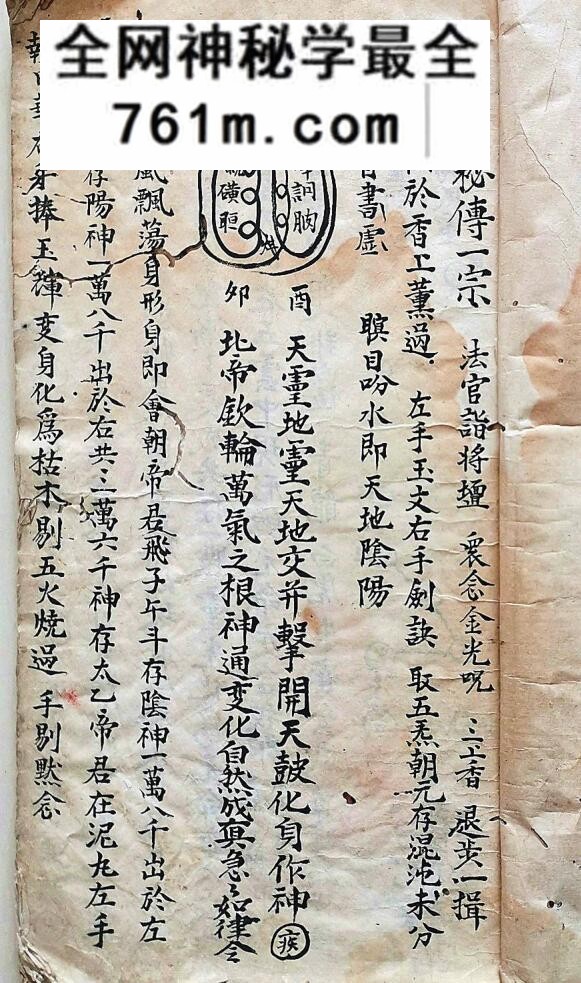 全网神秘学最全
761m.com
秘傳一宗 法官詣将壇 衆念金光呪 三上香 退癸一揖
於香上薰過 左手玉文右手劍訣 取五炁朝元存混沌未分
書虛 瞑目吩水即天地陰陽
詞肭
酉 天靈地靈天地交并擊開天皷化身作神 疾
磺脜
卯 北帝欽輪萬氣之根神通變化自然成真急々如律令
風飄蕩身形身即會朝帝君飛子午斗存陰神一萬八千出於左
存陽神一萬八千出於右共三萬六千神存太乙帝君在泥丸左手
身捧玉輝变身化爲枯木剔五火燒過 手剔默念